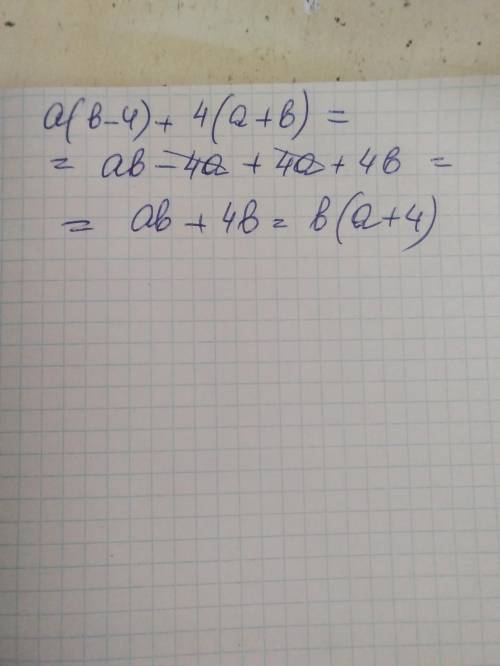 a(b-4)+ 4(a+b) =
= ab-4a + 4a + 4b =
= ab + 4b = b(a+4)